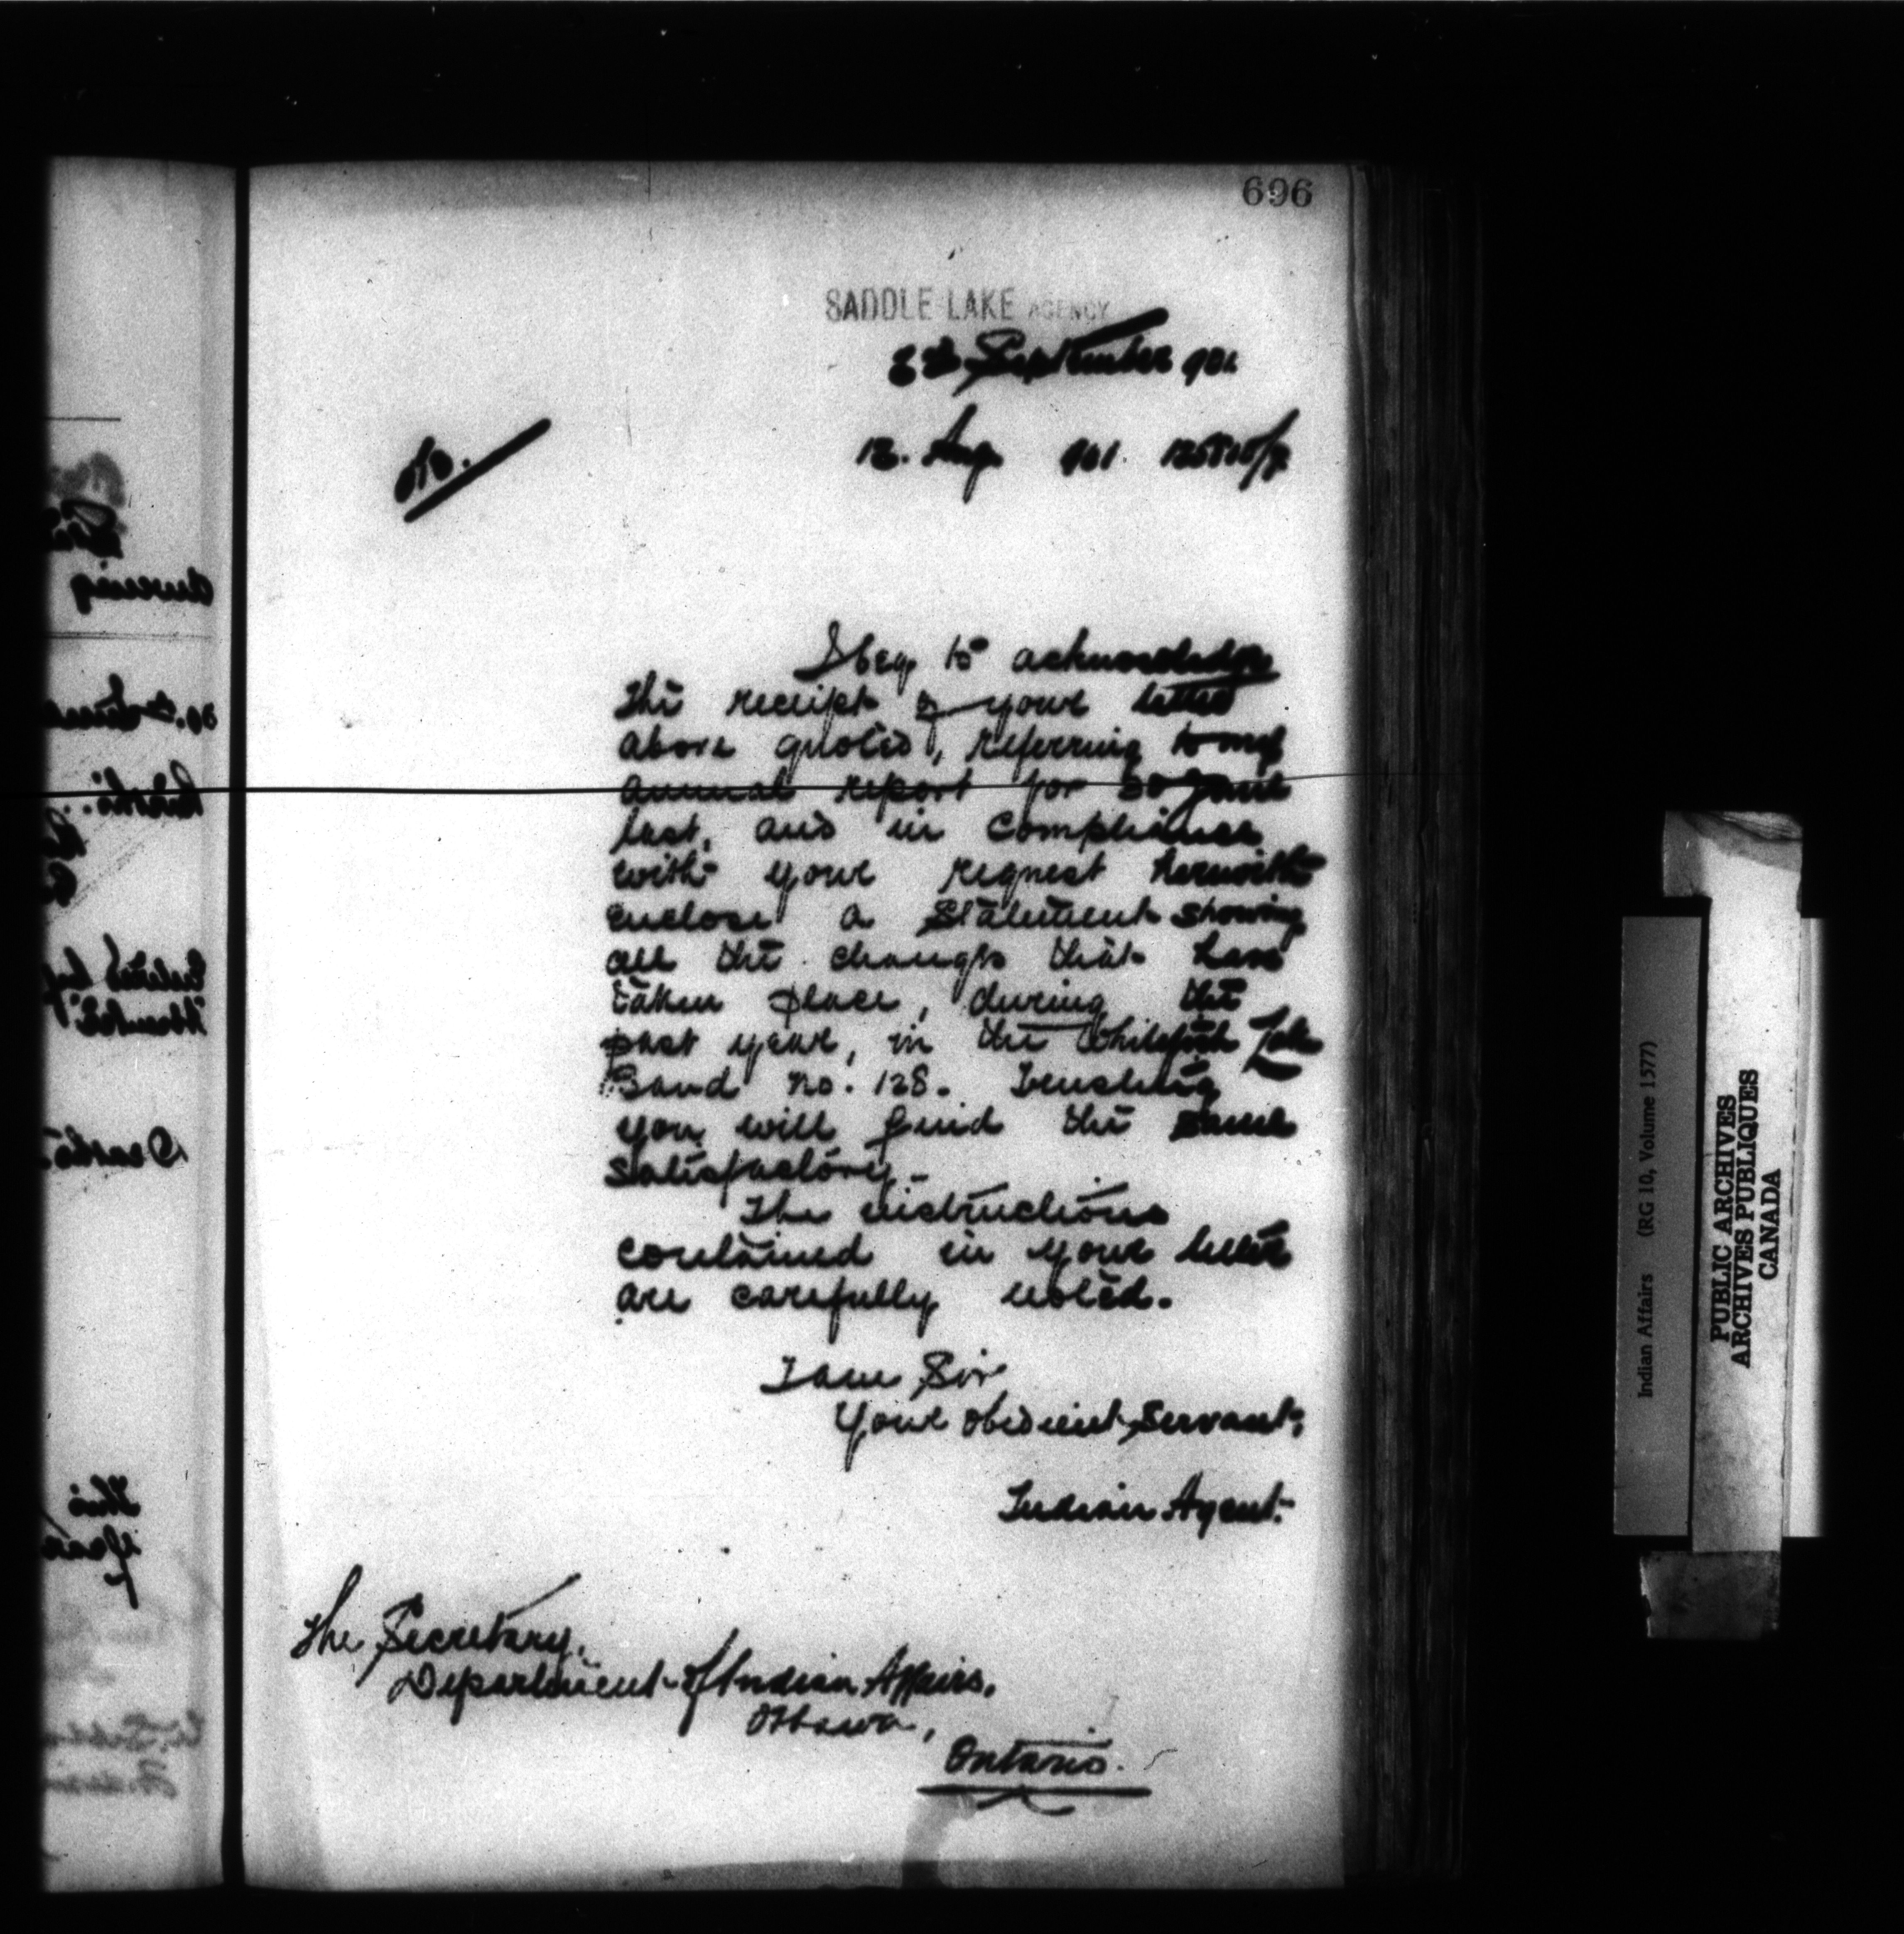 696
SADDLE LAKE AGENCY
September 901.
12. Aug 901.
Sir.
I beg to acknowledge
the receipt of your letter
above quoted, referring to my
annual report for 30 June
last, and in compliance
with your request herewith
enclose a Statement showing
all the changes that have
taken place, during the
past year, in the Whitefish Lake
Band no. 128. Trusting
you will find the same
satisfactory.
The instructions
contained in your letter
are carefully noted.
I am Sir
Your obedient Servant,
Indian Agent.
The Secretary,
Department of Indian Affairs.
Ottawa,
Ontario.
Indian Affairs (RG 10, Volume 1577)
PUBLIC ARCHIVES
ARCHIVES PUBLIQUES
CANADA